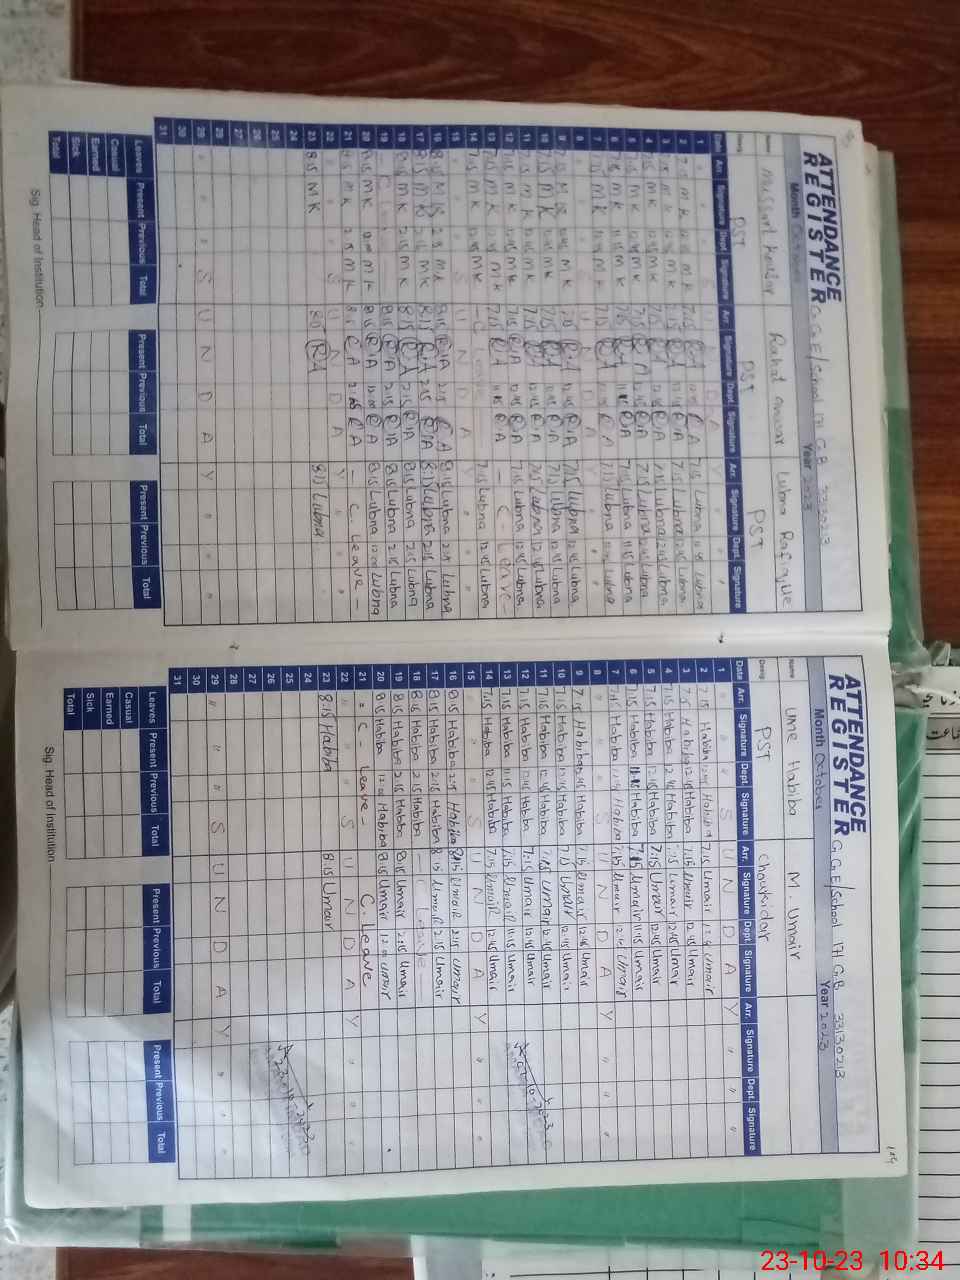 ATTENDANCE
REGISTER G.G.E/School 171 G.B 33130213
Month October Year 2023
Name Mussarat Kousar Rahat Anwar Lubna Rafique
Desig PST PST PST
Date Arr. Signature Dept. Signature Arr. Signature Dept. Signature Arr. Signature Dept. Signature
1 " " S U N D A Y " "
2 7:15 M K 12:45 M K 7:15 RA 12:45 RA 7:15 Lubna 12:45 Lubna
3 7:15 M K 12:45 M K 7:15 RA 12:45 RA 7:15 Lubna 12:45 Lubna
4 7:15 M K 12:45 M K 7:15 RA 12:45 RA 7:15 Lubna 12:45 Lubna
5 7:15 M K 12:45 M K 7:15 RA 12:45 RA 7:15 Lubna 12:45 Lubna
6 7:15 M K 11:15 M K 7:15 RA 11:15 RA 7:15 Lubna 11:15 Lubna
7 7:15 M K 12:45 M K 7:15 RA 12:45 RA 7:15 Lubna 12:45 Lubna
8 S U N D A Y
9 7:15 M K 12:45 M K 7:15 RA 12:45 RA 7:15 Lubna 12:45 Lubna
10 7:15 M K 12:45 M K 7:15 RA 12:45 RA 7:15 Lubna 12:45 Lubna
11 7:15 M K 12:45 M K 7:15 RA 12:45 RA 7:15 Lubna 12:45 Lubna
12 7:15 M K 12:45 M K 7:15 RA 12:45 RA 7:15 Lubna 12:45 Lubna
13 7:15 M K 12:45 M K 7:15 RA 11:15 RA - C Leave -
14 7:15 M K 12:45 M K - C Leave 7:15 Lubna 12:45 Lubna
15 " " S U N D A Y " "
16 8:15 M K 2:15 M K 8:15 RA 2:15 RA 8:15 Lubna 2:15 Lubna
17 8:15 M K 2:15 M K 8:15 RA 2:15 RA 8:15 Lubna 2:15 Lubna
18 8:15 M K 2:15 M K 8:15 RA 2:15 RA 8:15 Lubna 2:15 Lubna
19 - C 8:15 RA 2:15 RA 8:15 Lubna 2:15 Lubna
20 8:15 M K 12:00 M K 8:15 RA 12:00 RA 8:15 Lubna 12:00 Lubna
21 8:15 M K 2:15 M K 8:15 RA 2:15 RA - C. Leave -
22 " S U N D A Y " "
23 8:15 M K 8:15 RA 8:15 Lubna
24
25
26
27
28
29 " " S U N D A Y " "
30
31
Leaves Present Previous Total Present Previous Total Present Previous Total
Casual
Earned
Sick
Total
Sig. Head of Institution
ATTENDANCE
REGISTER G.G.E/School 171 G.B 33130213
Month October Year 2023
Name Ume Habiba M. Umair
Desig PST Choukidar
Date Arr. Signature Dept. Signature Arr. Signature Dept. Signature Arr. Signature Dept. Signature
1 " " S U N D A Y " "
2 7:15 Habiba 12:45 Habiba 7:15 Umair 12:45 Umair
3 7:15 Habiba 12:45 Habiba 7:15 Umair 12:45 Umair
4 7:15 Habiba 12:45 Habiba 7:15 Umair 12:45 Umair
5 7:15 Habiba 12:45 Habiba 7:15 Umair 12:45 Umair
6 7:15 Habiba 11:15 Habiba 7:15 Umair 11:15 Umair
7 7:15 Habiba 12:45 Habiba 7:15 Umair 12:45 Umair
8 " " S U N D A Y " "
9 7:15 Habiba 12:45 Habiba 7:15 Umair 12:45 Umair
10 7:15 Habiba 12:45 Habiba 7:15 Umair 12:45 Umair
11 7:15 Habiba 12:45 Habiba 7:15 Umair 12:45 Umair
12 7:15 Habiba 12:45 Habiba 7:15 Umair 12:45 Umair
13 7:15 Habiba 11:15 Habiba 7:15 Umair 11:15 Umair
14 7:15 Habiba 12:45 Habiba 7:15 Umair 12:45 Umair
15 " " S U N D A Y " "
16 8:15 Habiba 2:15 Habiba 8:15 Umair 2:15 Umair
17 8:15 Habiba 2:15 Habiba 8:15 Umair 2:15 Umair
18 8:15 Habiba 2:15 Habiba - C Leave -
19 8:15 Habiba 2:15 Habiba 8:15 Umair 2:15 Umair
20 8:15 Habiba 12:00 Habiba 8:15 Umair 12:00 Umair
21 - C - Leave - C. Leave
22 " " S U N D A Y " "
23 8:15 Habiba 8:15 Umair
24
25
26
27
28
29 " " S U N D A Y " "
30
31
Leaves Present Previous Total Present Previous Total Present Previous Total
Casual
Earned
Sick
Total
Sig. Head of Institution
23-10-23 10:34